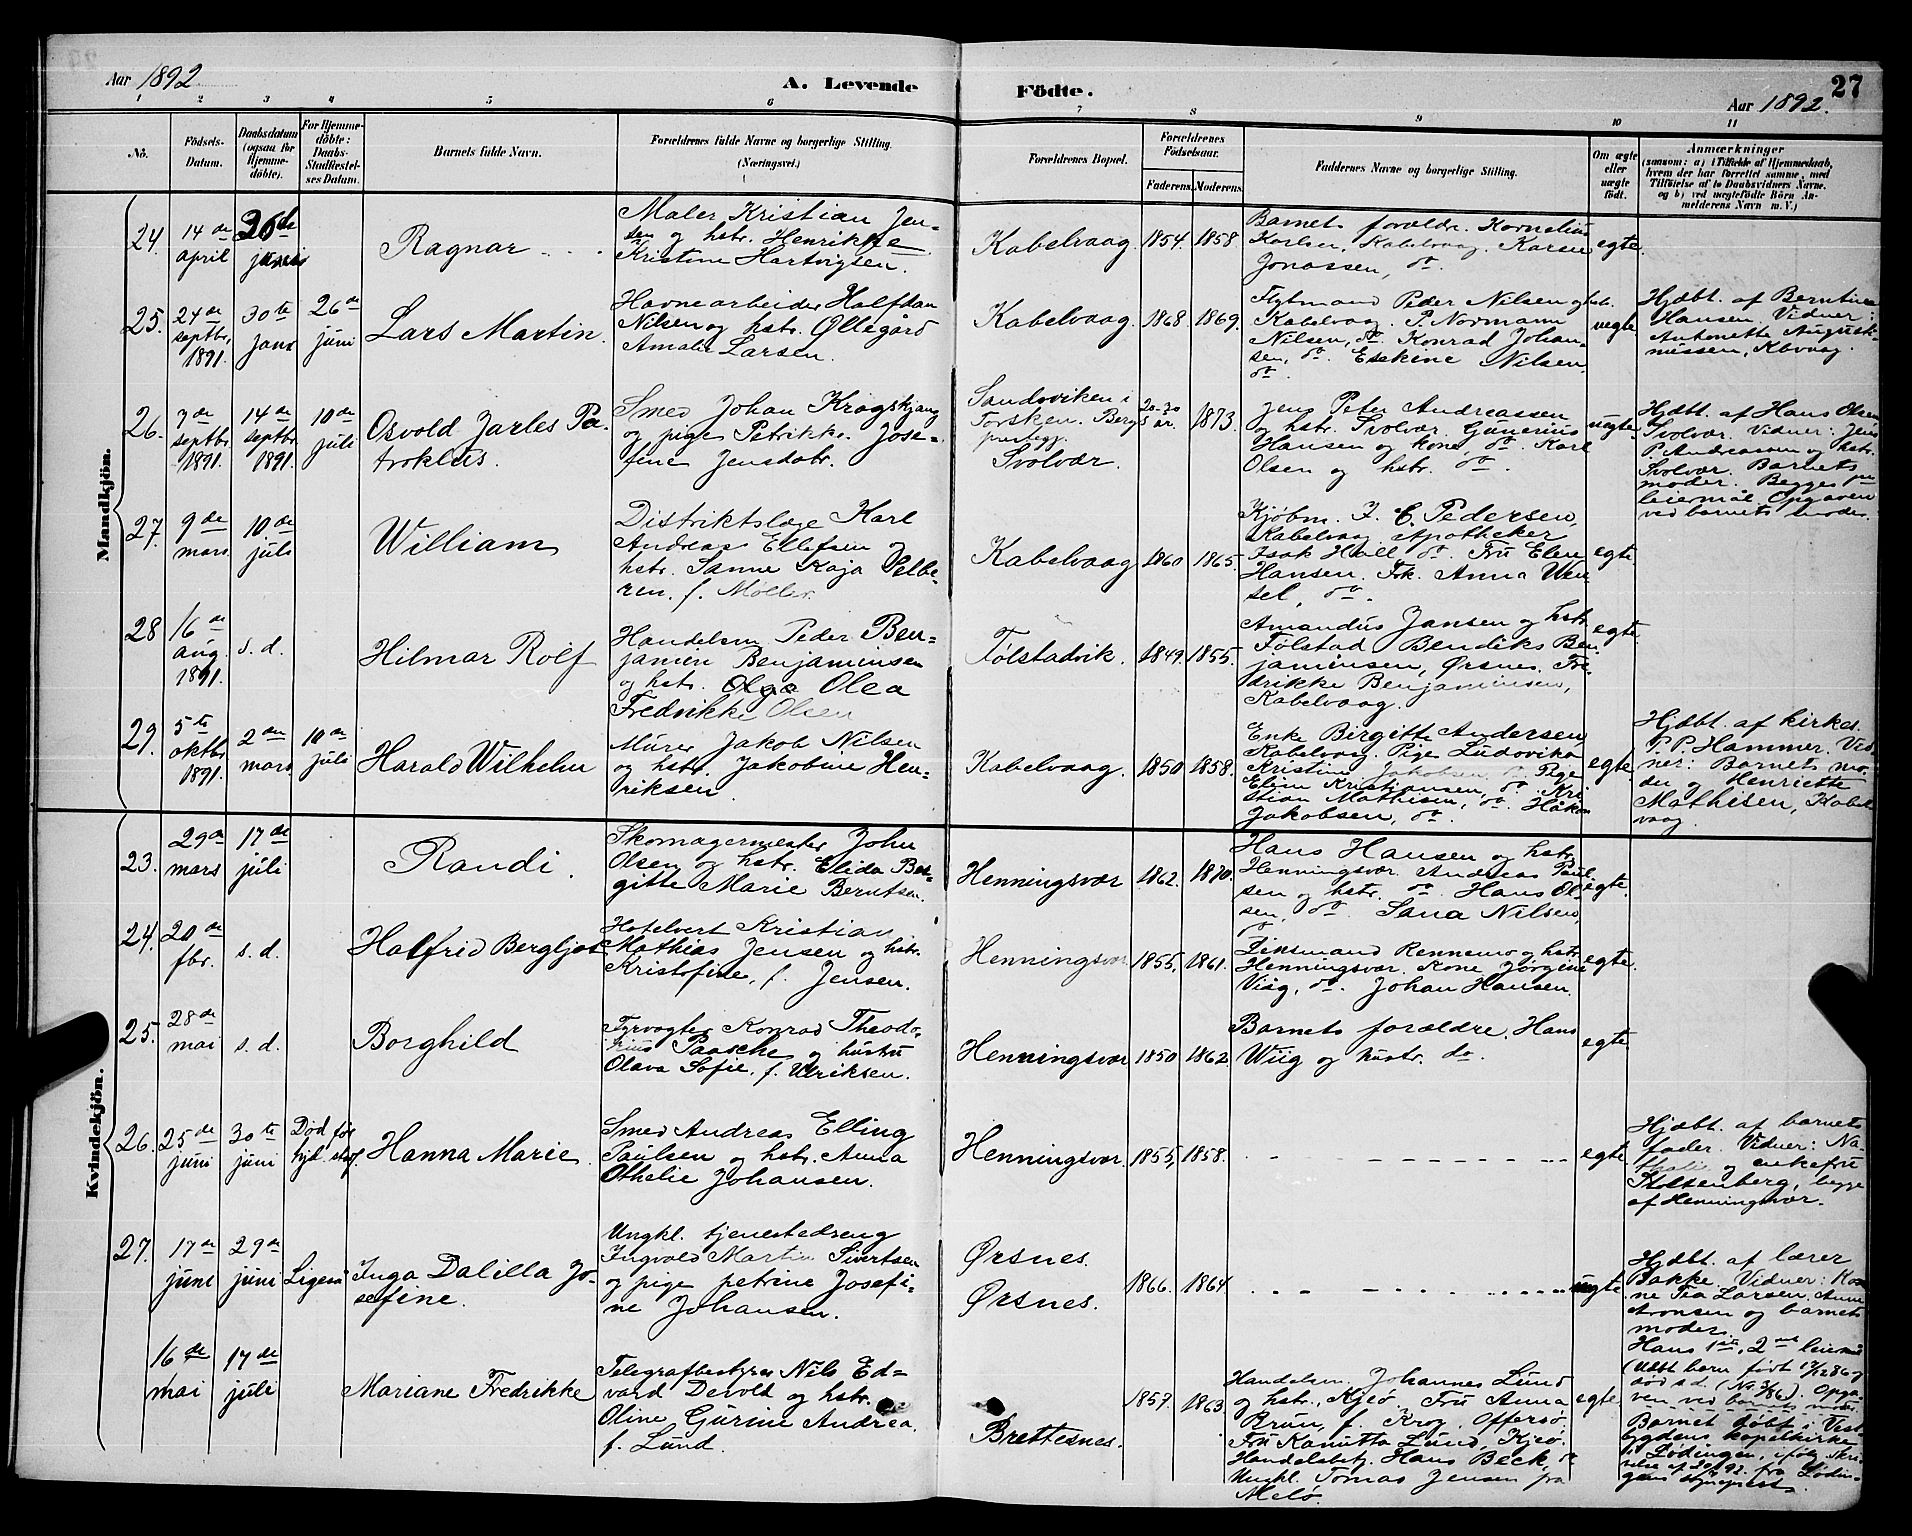 Aar 1892
A. Levende
Födte.
27
Aar 1892.
1 2 3 4 5 6 7 8 9 10 11
No.
Födsels-
Datum.
Daabsdatum
(ogsaa for
Hjemme-
döbte).
For Hjemme-
döbte:
Daabs-
Stadfæstel-
ses Datum.
Barnets fulde Navn.
Forældrenes fulde Navne og borgerlige Stilling.
(Næringsvei.)
Forældrenes Bopæl.
Forældrenes
Födselsaar.
Faderens. Moderens.
Faddernes Navne og borgerlige Stilling.
Om ægte
eller
uægte
født.
Anmærkninger
(saasom: a) i Tilfælde af Hjemmedaab,
hvem der har forrettet samme, med
Tilföielse af to Daabsvidners Navne.
og b) ved uægtefödte Börn An-
melderens Navn m. V.)
Mandkjön.
24.
14de
april
26de
juni
Ragnar
Maler Kristian Jen-
sen og hstr. Henrikke
Kristine Hartvigsen.
Kabelvaag.
1854. 1858
Barnets forældr. Kornelius
Karlsen, Kabelvaag. Karen
Jonassen, do.
egte.
25.
24de
septbr.
1891.
30te
janr
26de
juni
Lars Martin.
Havnearbeider Halfdan
Nilsen og hstr. Øllegård
Amalie Larsen.
Kabelvaag.
1868. 1869.
Flytmand Peder Nilsen og hst.
Kabelvaag. P. Normann
Nilsen, do. Konrad Johan-
sen, do. Erikine Nilsen
do.
uegte
Hjdbt. af Berntine
Hansen. Vidner:
Antonette Augusti-
nussen, Kbvaag.
26.
7de
septbr
1891.
14de
septbr
1891.
10de
juli
Osvold Jarles Pa-
troklus.
Smed Johan Kragskjang
og pige Petrikke Jose-
fine Jensdatr.
Sandviken i
Torsken. Bergs
prestegj.
Svolvær.
20-30
år.
1873.
Jens Peter Andreassen
og hstr. Svolvær. Gunerius
Hansen og kone, do. Karl
Olsen og hstr. do.
uegte.
Hjdbt. af Hans Olsen
Svolvær. Vidner: Jens
P. Andreassen og hstr.
Svolvær. Barnets
moder. Begges 1ste
leiermål. Opgaven
ved barnets moder.
27.
9de
mars
10de
juli
William
Distriktslæge Karl
Andreas Ellefsen og
hstr. Sanne Kaja Velbe-
ren. f. Møller.
Kabelvaag
1860 1865.
Kjøbm. J. C. Pedersen,
Kabelvaag. Apotheker
Isak Hall do. Fru Elen
Hansen. Frk. Anna Wen-
sel, do.
egte.
28
16de
aug.
1891.
s. d.
Hilmar Rolf
Handelsm. Peder Ben-
jamin Benjaminsen
og hstr. Olga Olea
Fredrikke Olsen
Følstadvik.
1849. 1855.
Amandus Jansen og hstr.
Følstad Bendiks Ben-
jaminsen, Ørsnes. Fre-
drikke Benjaminsen,
Kabelvaag.
egte.
29.
5te
oktbr
1891.
2den
mars
10de
juli
Harald Wilhelm
Murer Jakob Nilsen
og hstr. Jakobine Hen-
riksen.
Kabelvaag.
1850 1858.
Enke Birgitte Andersen
Kabelvaag. Pige Ludovika
Kristine Jakobsen, do. Pige
Eline Kristiansen, do. Kri
stian Mathisen, do. Håkon
Jakobsen, do.
egte.
Hjdbt. af kirkes.
P. P. Hammer. Vid-
ner: Barnets mo-
der og Henriette
Mathisen, Kabel-
vaag.
Kvindekjön.
23.
29de
mars
17de
juli
Randi.
Skomagermester John
Olsen og hstr. Elida Ber-
gitte Marie Berntsen.
Henningsvær
1862. 1870.
Hans Hansen og hstr.
Henningsvær. Andreas Paul-
sen og hstr. do. Hans Ol-
sen, do. Sana Nilsen,
do.
egte.
24.
20de
fbr.
s. d.
Halfrid Bergljot
Hotelvert Kristian
Mathias Jensen og hstr.
Kristofine, f. Jensen.
Henningsvær
1855. 1861.
Diksmand Rennemo og hstr.
Henningsvær. Kone Jørgine
Viig, do. Johan Hansen.
egte.
25.
28de
mai
s. d.
Borghild
Fyrvogter Konrad Theodo-
rius Paasche og hustru
Olava Sofie, f. Ulriksen.
Henningsvær
1850 1862.
Barnets forældre, Hans
Wiig og hustr. do.
egte.
26.
25de
juni
30te
juni
Død før
hjd. stadf.
Hanna Marie.
Smed Andreas Elling
Paulsen og hstr. Anna
Othelie Johansen.
Henningsvær
1855, 1858.
egte.
Hjdbt. af barnets
fader. Vidner: Na-
thalie og enkefru
Stoltenberg, begge
af Henningsvær.
27.
17de
juni
29de
juni
Ligeså
Inga Dalilla Jo-
sefine.
Ungkl. tjenestedreng
Ingvald Martin Sivertsen
og pige petrine Josefi-
ne Johansen.
Ørsnes.
Ørsnes.
1866. 1864.
uegte.
Hjdbt. af lærer
Bakke. Vidner: Ko-
ne Pia Larsen, Anne
Aronsen og barnets
moder.
Hans 1ste, 2det leiermål
(Uægt barn født 17/12 86 og
død s.d. (No. 3/86). Opga-
ven ved barnets moder.
16de
mai
17de
juli
Mariane Fredrikke
Telegrafbestyrer Nils Ed-
vard Dervold og hstr.
Oline Gurine Andrea,
f. Lund.
Brettesnes.
1857. 1863.
Handelsm. Johannes Lund
og hstr., Kjeø. Fru Anna
Brun, f. Krog, Offersø.
Fru Kanutta Lund, Kjeø.
Handelsbetj. Hans Beck, do
Ungkl. Tomas Jensen fra
Melø.
egte.
Barnet døbt i Vest-
bygdens kapelkirke
i Lødingen, ifølg skri-
velse af 20/9 92. fra Lødin-
gens sogneprest.